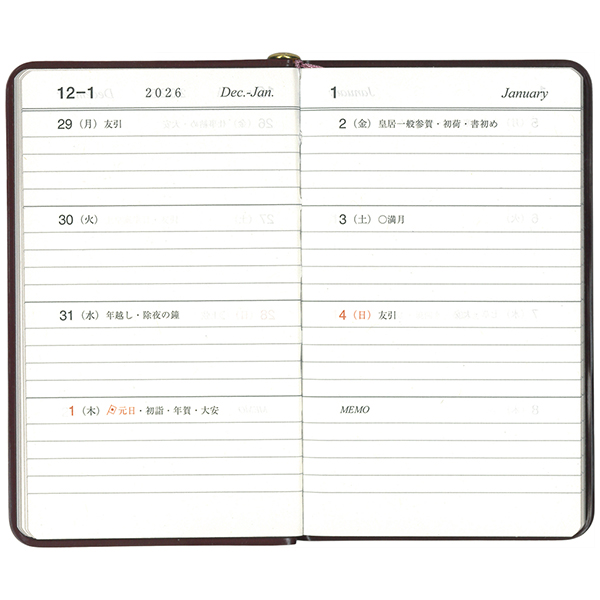 12−1 2026 Dec.-Jan.
29（月）友引
30（火）
31（水）年越し・除夜の鐘
1（木）元日・初詣・年賀・大安
1 January
2（金）皇居一般参賀・初荷・書初め
3（土）○満月
4（日）友引
MEMO